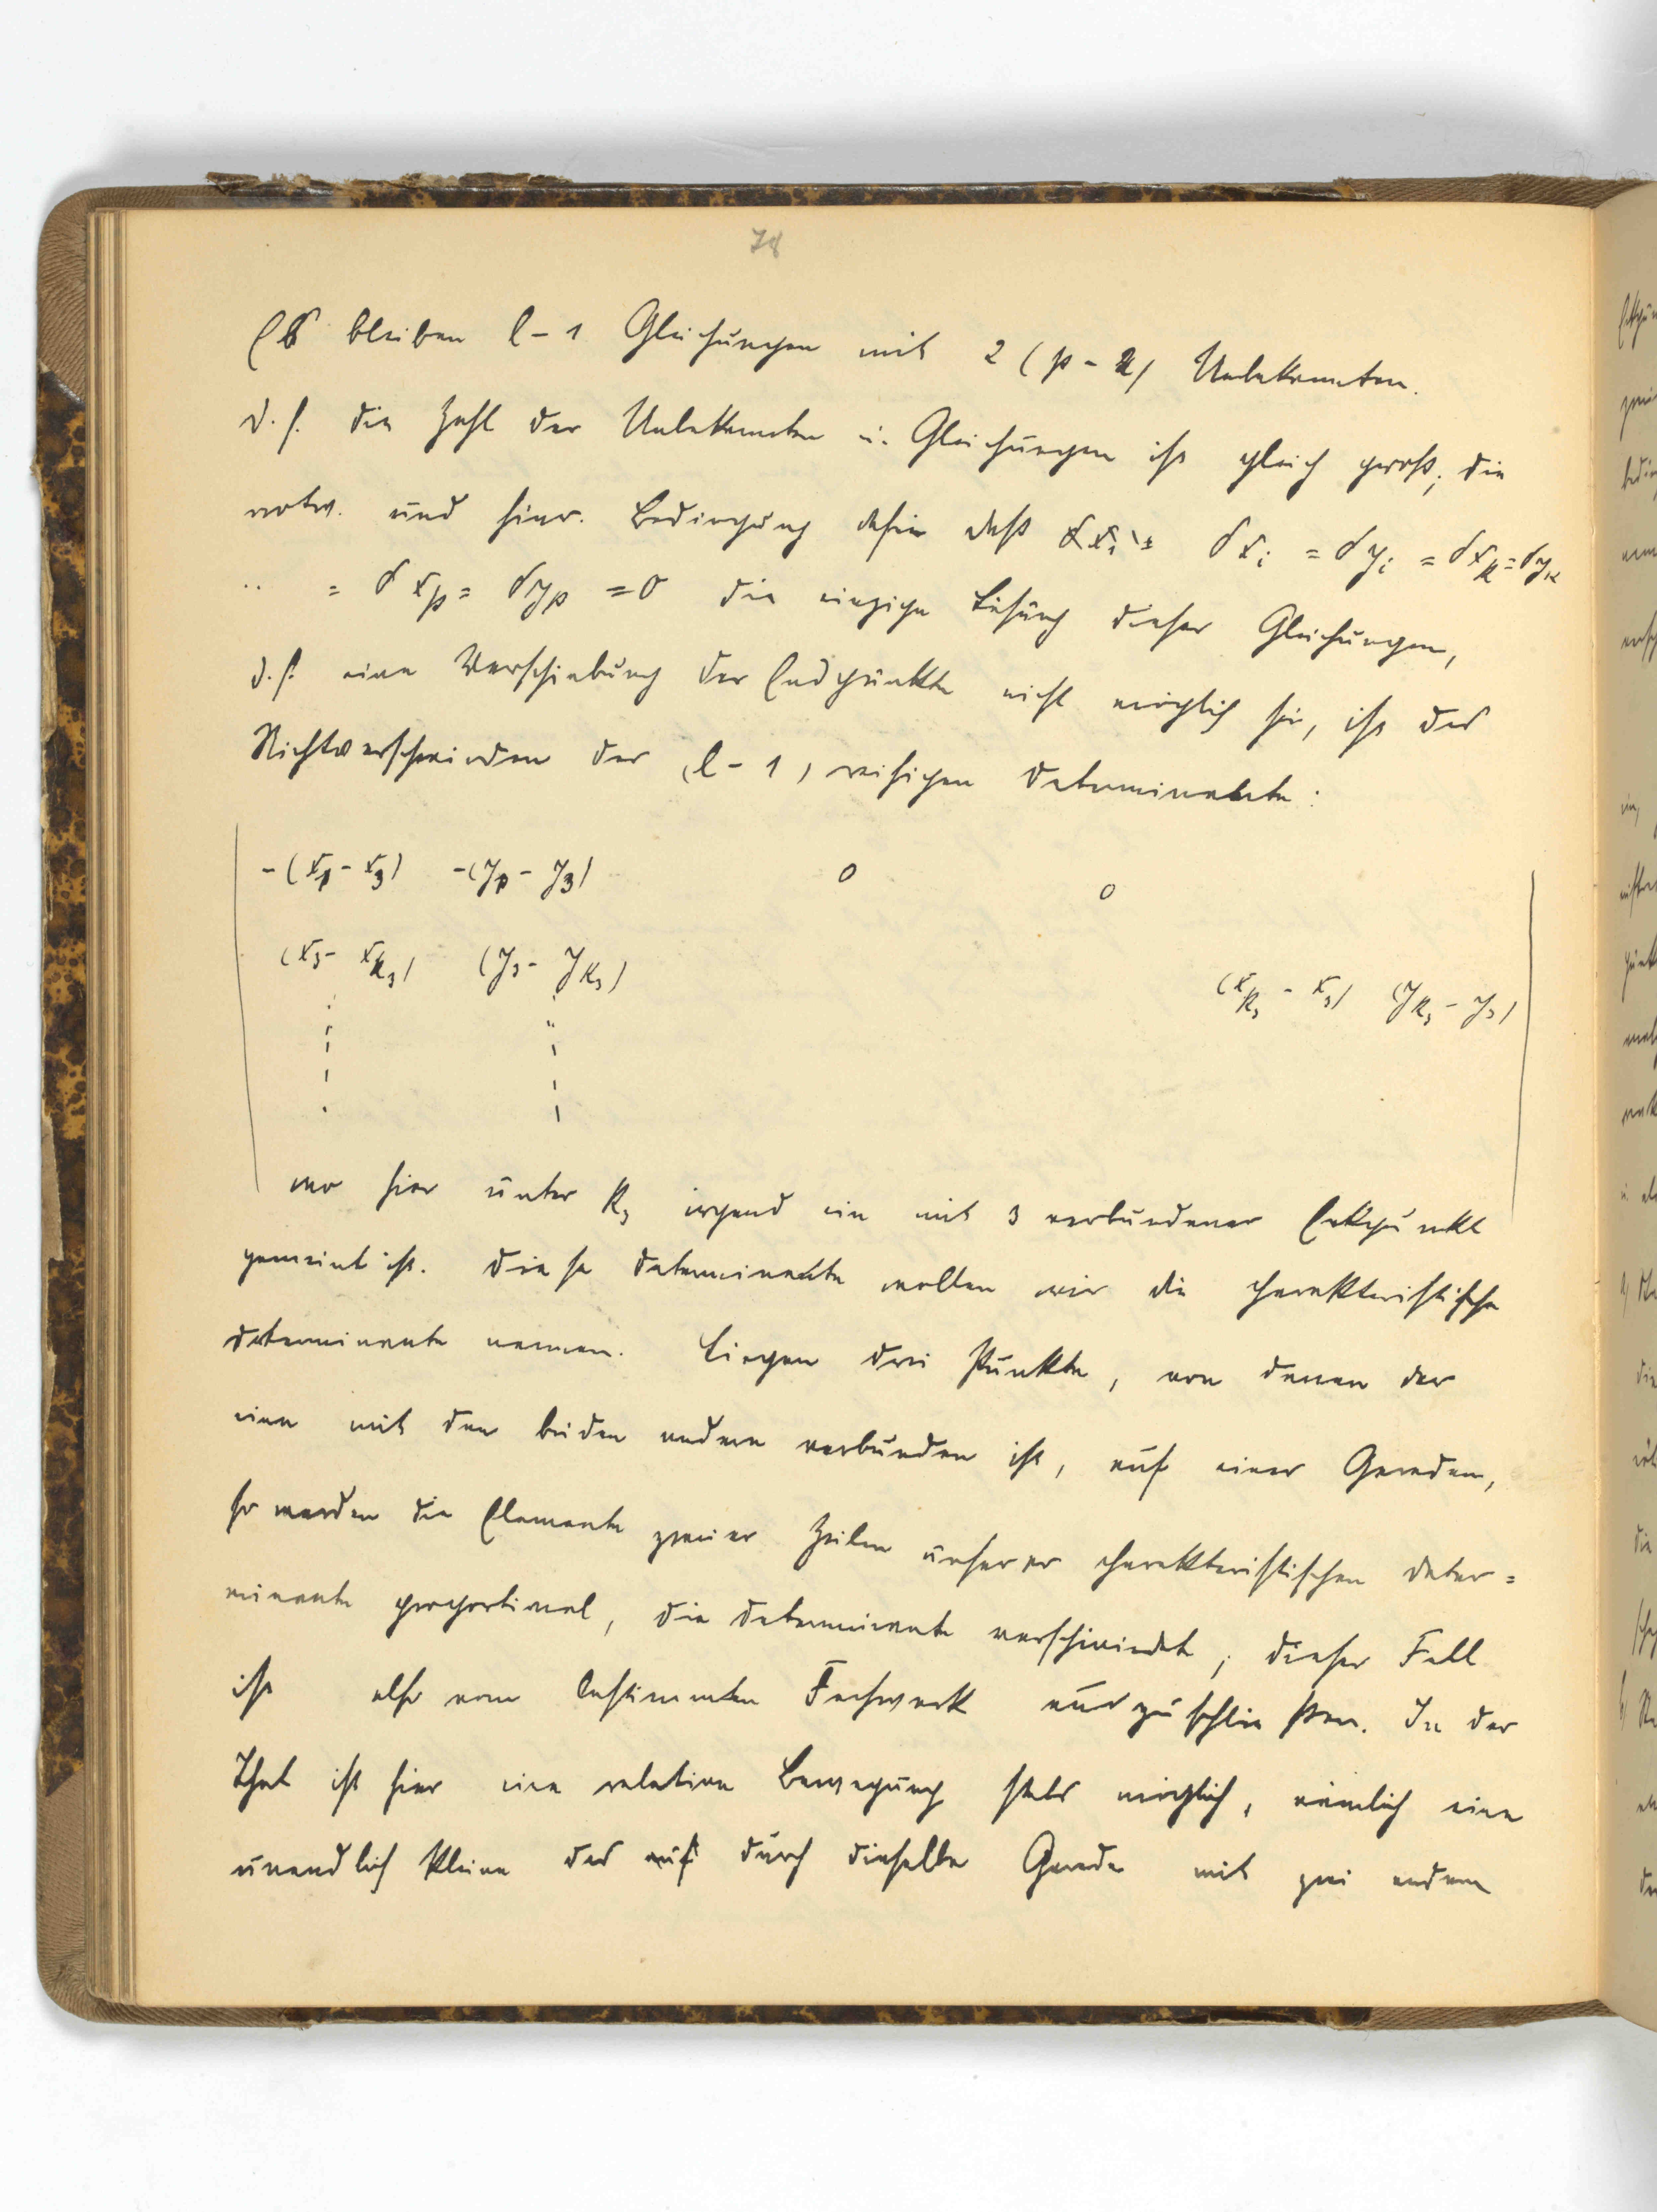 78
Es bleiben l - 1 Gleichungen mit 2 (p - 2) Unbekannten.
d. h. die Zahl der Unbekannten u. Gleichungen ist gleich groß; die
notw. und hinr. Bedingung dafür daß δxi = δyi = δxk = δyk
.. = δxp = δyp = 0 die einzige Lösung dieser Gleichungen,
d. h. eine Verschiebung der Endpunkte nicht möglich sei, ist das
Nichtverschwinden der (l - 1) reihigen Determinante:
-(xp - x3) -(yp - y3) 0 0
(x3 - xk3) (y3 - yk3) (xk3 - x3) (yk3 - y3)
wo hier unter k3 irgend ein mit 3 verbundener Eckpunkt
gemeint ist. Diese Determinante wollen wir die charakteristische
Determinante nennen. Liegen drei Punkte, von denen der
eine mit den beiden andern verbunden ist, auf einer Geraden,
so werden die Elemente zweier Zeilen unserer charakteristischen Deter=
minante proportional, die Determinante verschwindet; dieser Fall
ist also vom bestimmten Fachwerk auszuschließen. In der
That ist hier eine relative Bewegung stets möglich, nämlich eine
unendlich kleine des durch dieselbe Gerade mit zwei andern